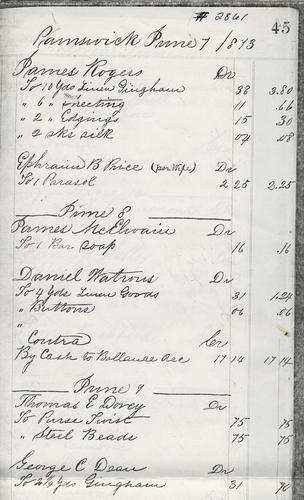 # 2861
45
Ramswick June 7 / 1873
James Rogers Dr
To 10 Yds Linen Gingham 38 3.80
" 6 " Sheeting 11 .66
" 2 " Edgings 15 .30
" 2 Sks Silk 04 .08
Ephraim B Price (per Wife) Dr
To 1 Parasol 2 25 2.25
June 8
James McElwain Dr
To 1 Bar Soap 16 .16
Daniel Watrous Dr
To 4 Yds Linen Goods 31 1.24
" Buttons 06 .06
"
Contra Cr
By Cash to Ballance Acc 17 14 17 14
June 9
Thomas E Dovey Dr
To Purse Twist 75 75
" Steel Beads 75 75
George C Dean Dr
To 2 1/4 Yds Gingham 31 70